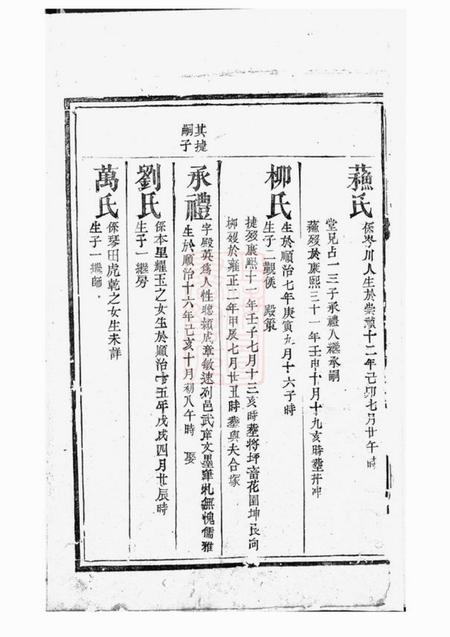 蘓氏
係岑川人生於崇禎十二年己卯七月廿午時
堂兄占一三子承禮入繼承嗣
蘓歿於康熙三十一年壬申十月十九亥時塟芹冲
柳氏
生於順治七年庚寅九月十六子時
生子二觀侯 殿策
捷歿康熙十一年壬子七月十三亥時塟將坪畲花園坤艮向
柳歿於雍正二年甲辰七月廿丑時塟與夫合塚
其捷
嗣子
承禮
字殿英爲人性聰穎成章敏速列邑武庠文墨筆札無愧儒雅
生於順治十六年己亥十月初八午時 娶
劉氏
係本里耀玉之女生於順治十五年戊戌四月廿辰時
生子一繼房
萬氏
係琴田虎乾之女生未詳
生子一繼師